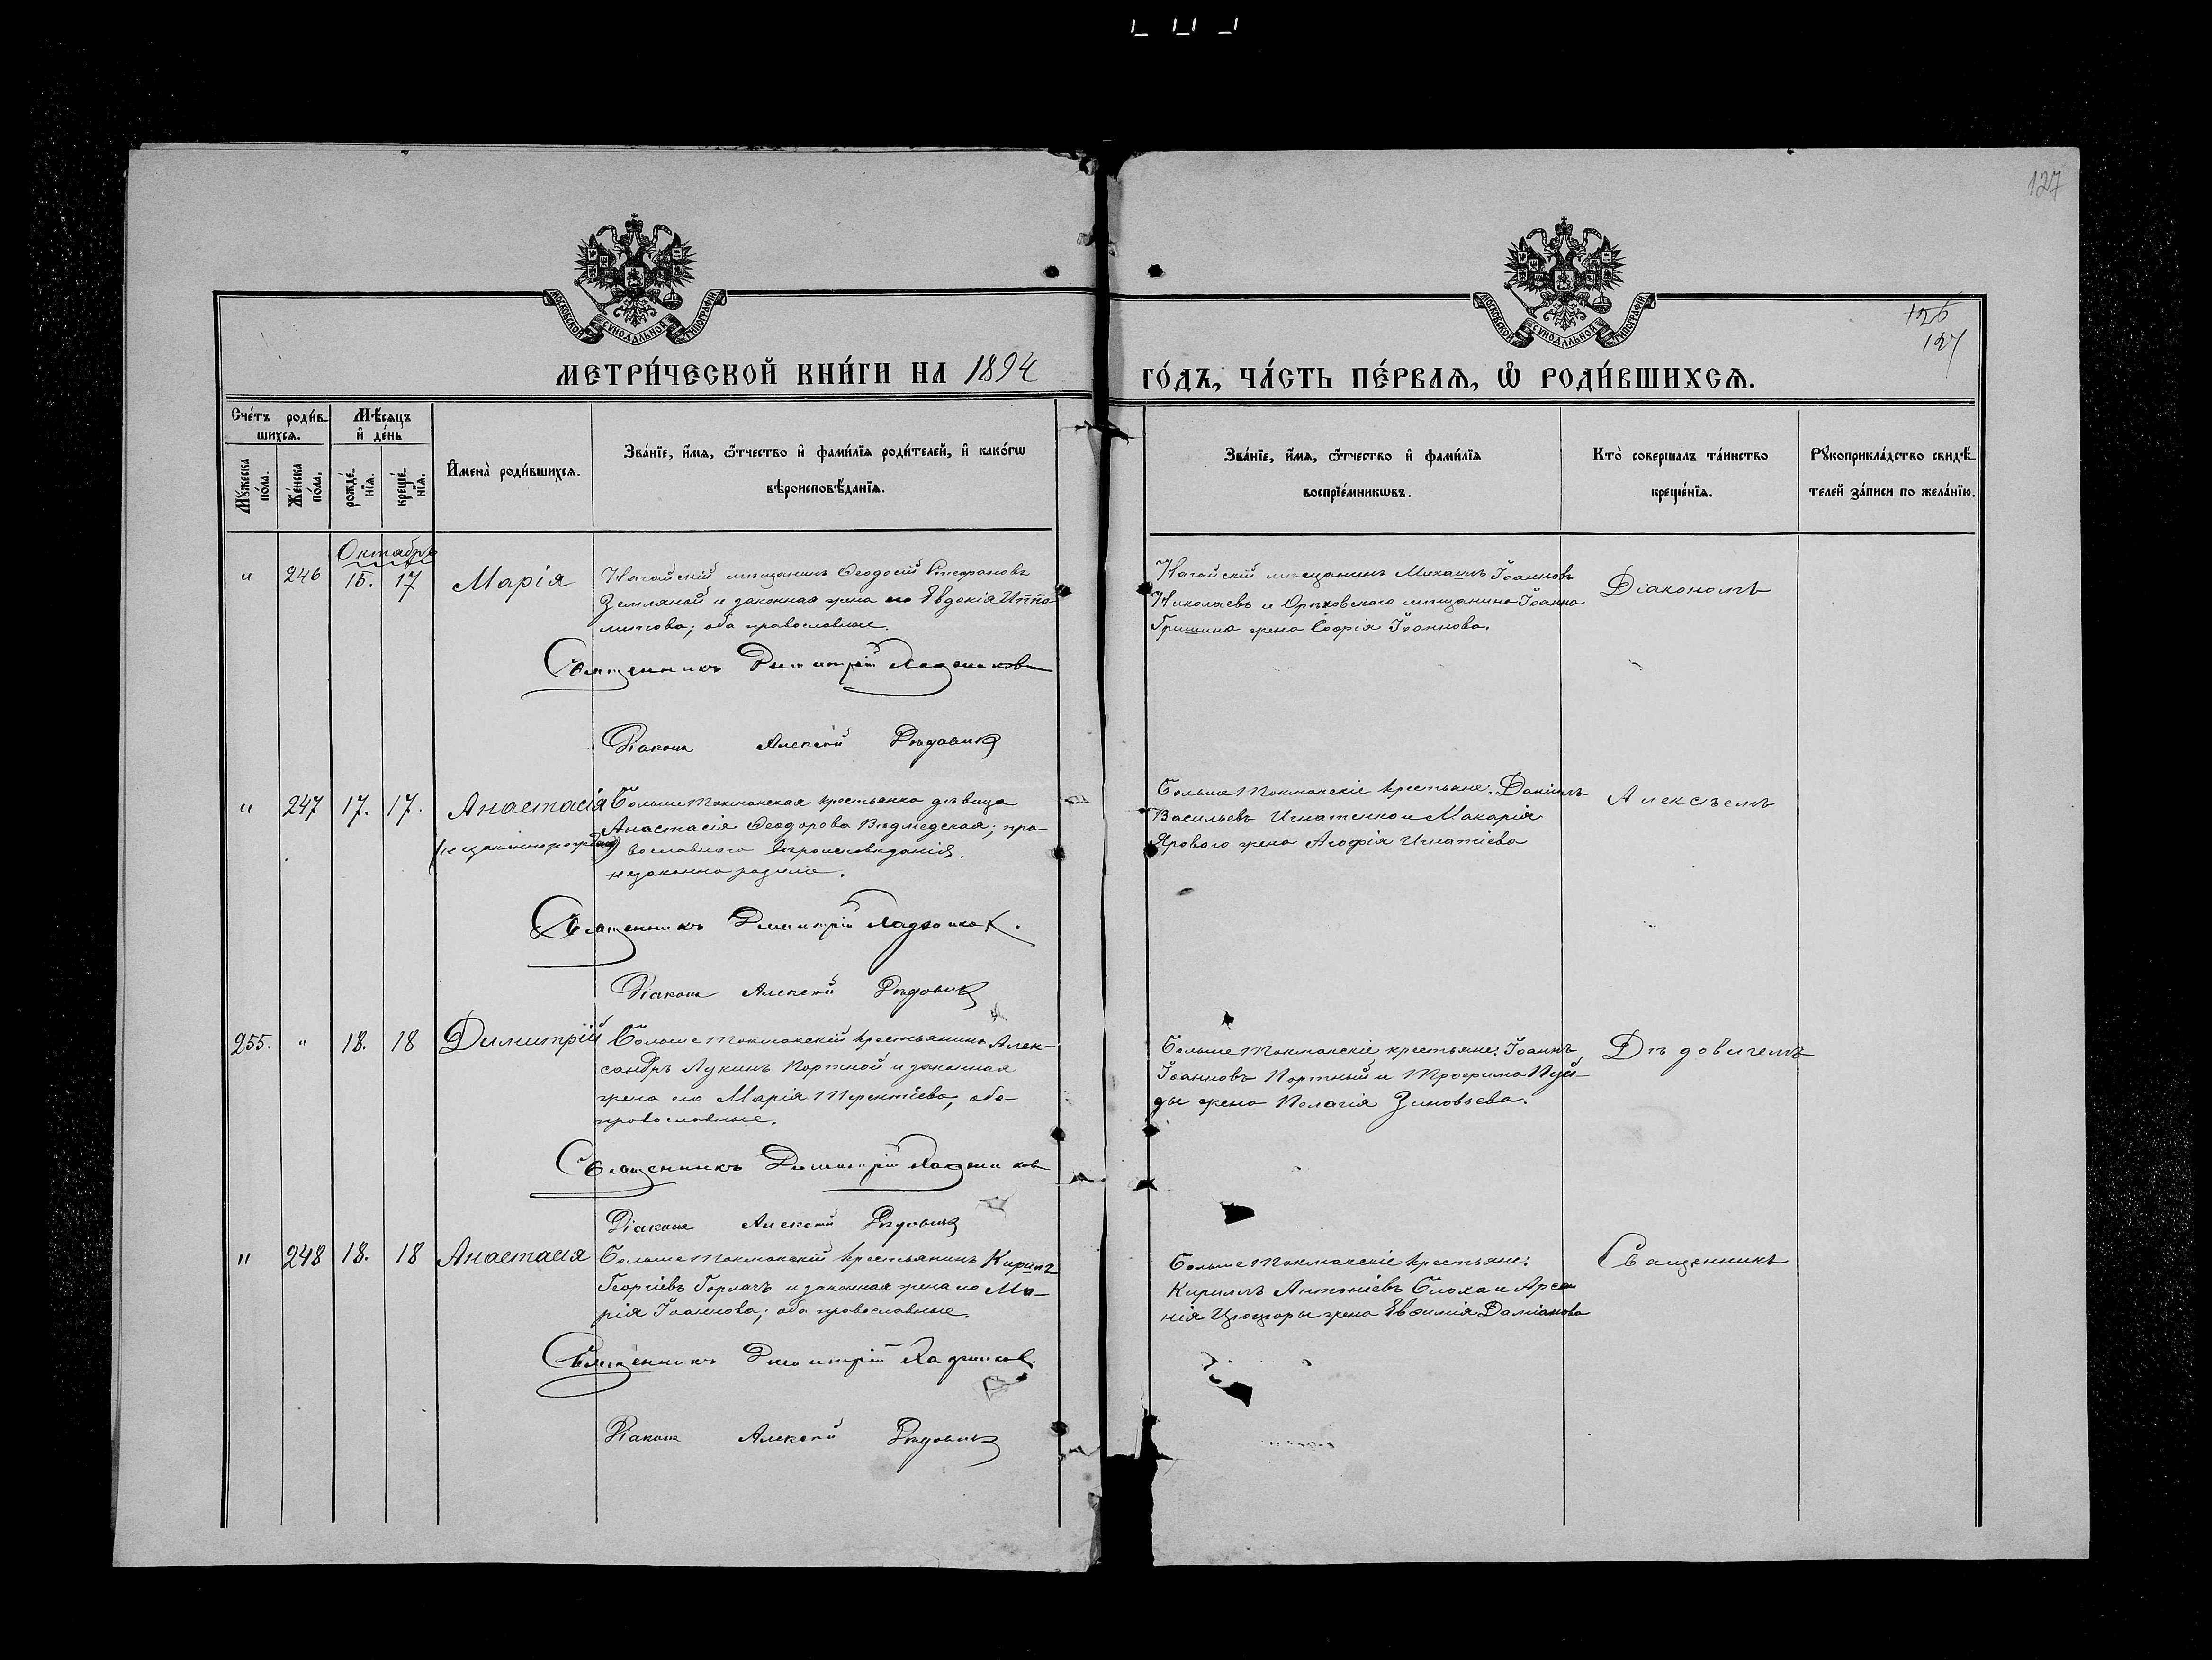 127
МОСКОВСКОЙ СѴНОДАЛЬНОЙ ТИПОГРАФІИ
МОСКОВСКОЙ СѴНОДАЛЬНОЙ ТИПОГРАФІИ
126
127
МЕТРИ́ЧЕСКОЙ КНИ́ГИ НА 1894
ГО́ДЪ, ЧА́СТЬ ПЕ́РВАѦ, Ѡ҆ РОДИ́ВШИХСѦ.
Сче́тъ роди́в-
шихсѧ.
Мѣ́сяцъ
и҆ де́нь
Мꙋ́жеска по́ла.
Же́нска по́ла.
рожде́нїѧ.
креще́нїѧ.
И҆мена̀ роди́вшихсѧ.
Зва́нїе, и҆́мѧ, ѻ҆́тчество и҆ фами́лїѧ роди́телей, и҆ како́гѡ
вѣроисповѣ́данїѧ.
Зва́нїе, и҆́мѧ, ѻ҆́тчество и҆ фами́лїѧ
воспрїе́мникѡвъ.
Кто̀ соверша́лъ та́инство
креще́нїѧ.
Рꙋкоприкла́дство свидѣ́-
телей за́писи по жела́нїю.
Октябрь
" 246 15. 17 Марія
Ногайскій мѣщанинъ Ѳеодосій Стефановъ
Земляной и законная жена его Евдокія Иппо-
литова; оба православные.
Священникъ Димитрій
Діаконъ Алексѣй Дѣдовичъ
Ногайскій мѣщанинъ Михаилъ Іоанновъ
Николаевъ и Орѣховского мѣщанина Іоанна
Гришина жена Софія Іоаннова.
Діакономъ
" 247 17. 17. Анастасія
(незаконнорожден)
Больше Токмакская крестьянка дѣвица
Анастасія Ѳеодорова Видмедская; пра-
вославного вѣроисповѣданія.
незаконно
Священникъ Димитрій
Діаконъ Алексѣй Дѣдовичъ
Больше Токмакскіе крестьяне: Даніилъ
Васильевъ Игнатенко и Макарія
Ярового жена Агафія Игнатіева
Алексѣемъ
255. " 18. 18 Димитрій
Больше Токмакскій крестьянинъ Алек-
сандръ Лукинъ Портной и законная
жена его Марія Терентіева, оба
православные.
Священникъ Димитрій
Діаконъ Алексѣй Дѣдовичъ
Больше Токмакскіе крестьяне: Іоаннъ
Іоанновъ Портный и Трофима Пуй-
ды жена Пелагія Зиновьева.
Дѣдовичемъ
" 248 18. 18 Анастасія
Больше Токмакскій крестьянинъ Кирилъ
Георгіевъ Горлачъ и законная жена его Ма-
рія Іоаннова; оба православные.
Священникъ Димитрій
Діаконъ Алексѣй Дѣдовичъ
Больше Токмакскіе крестьяне:
Кириллъ Антоніевъ Блоха и Арсе
нія жена Евфимія Даміанова
Священникъ